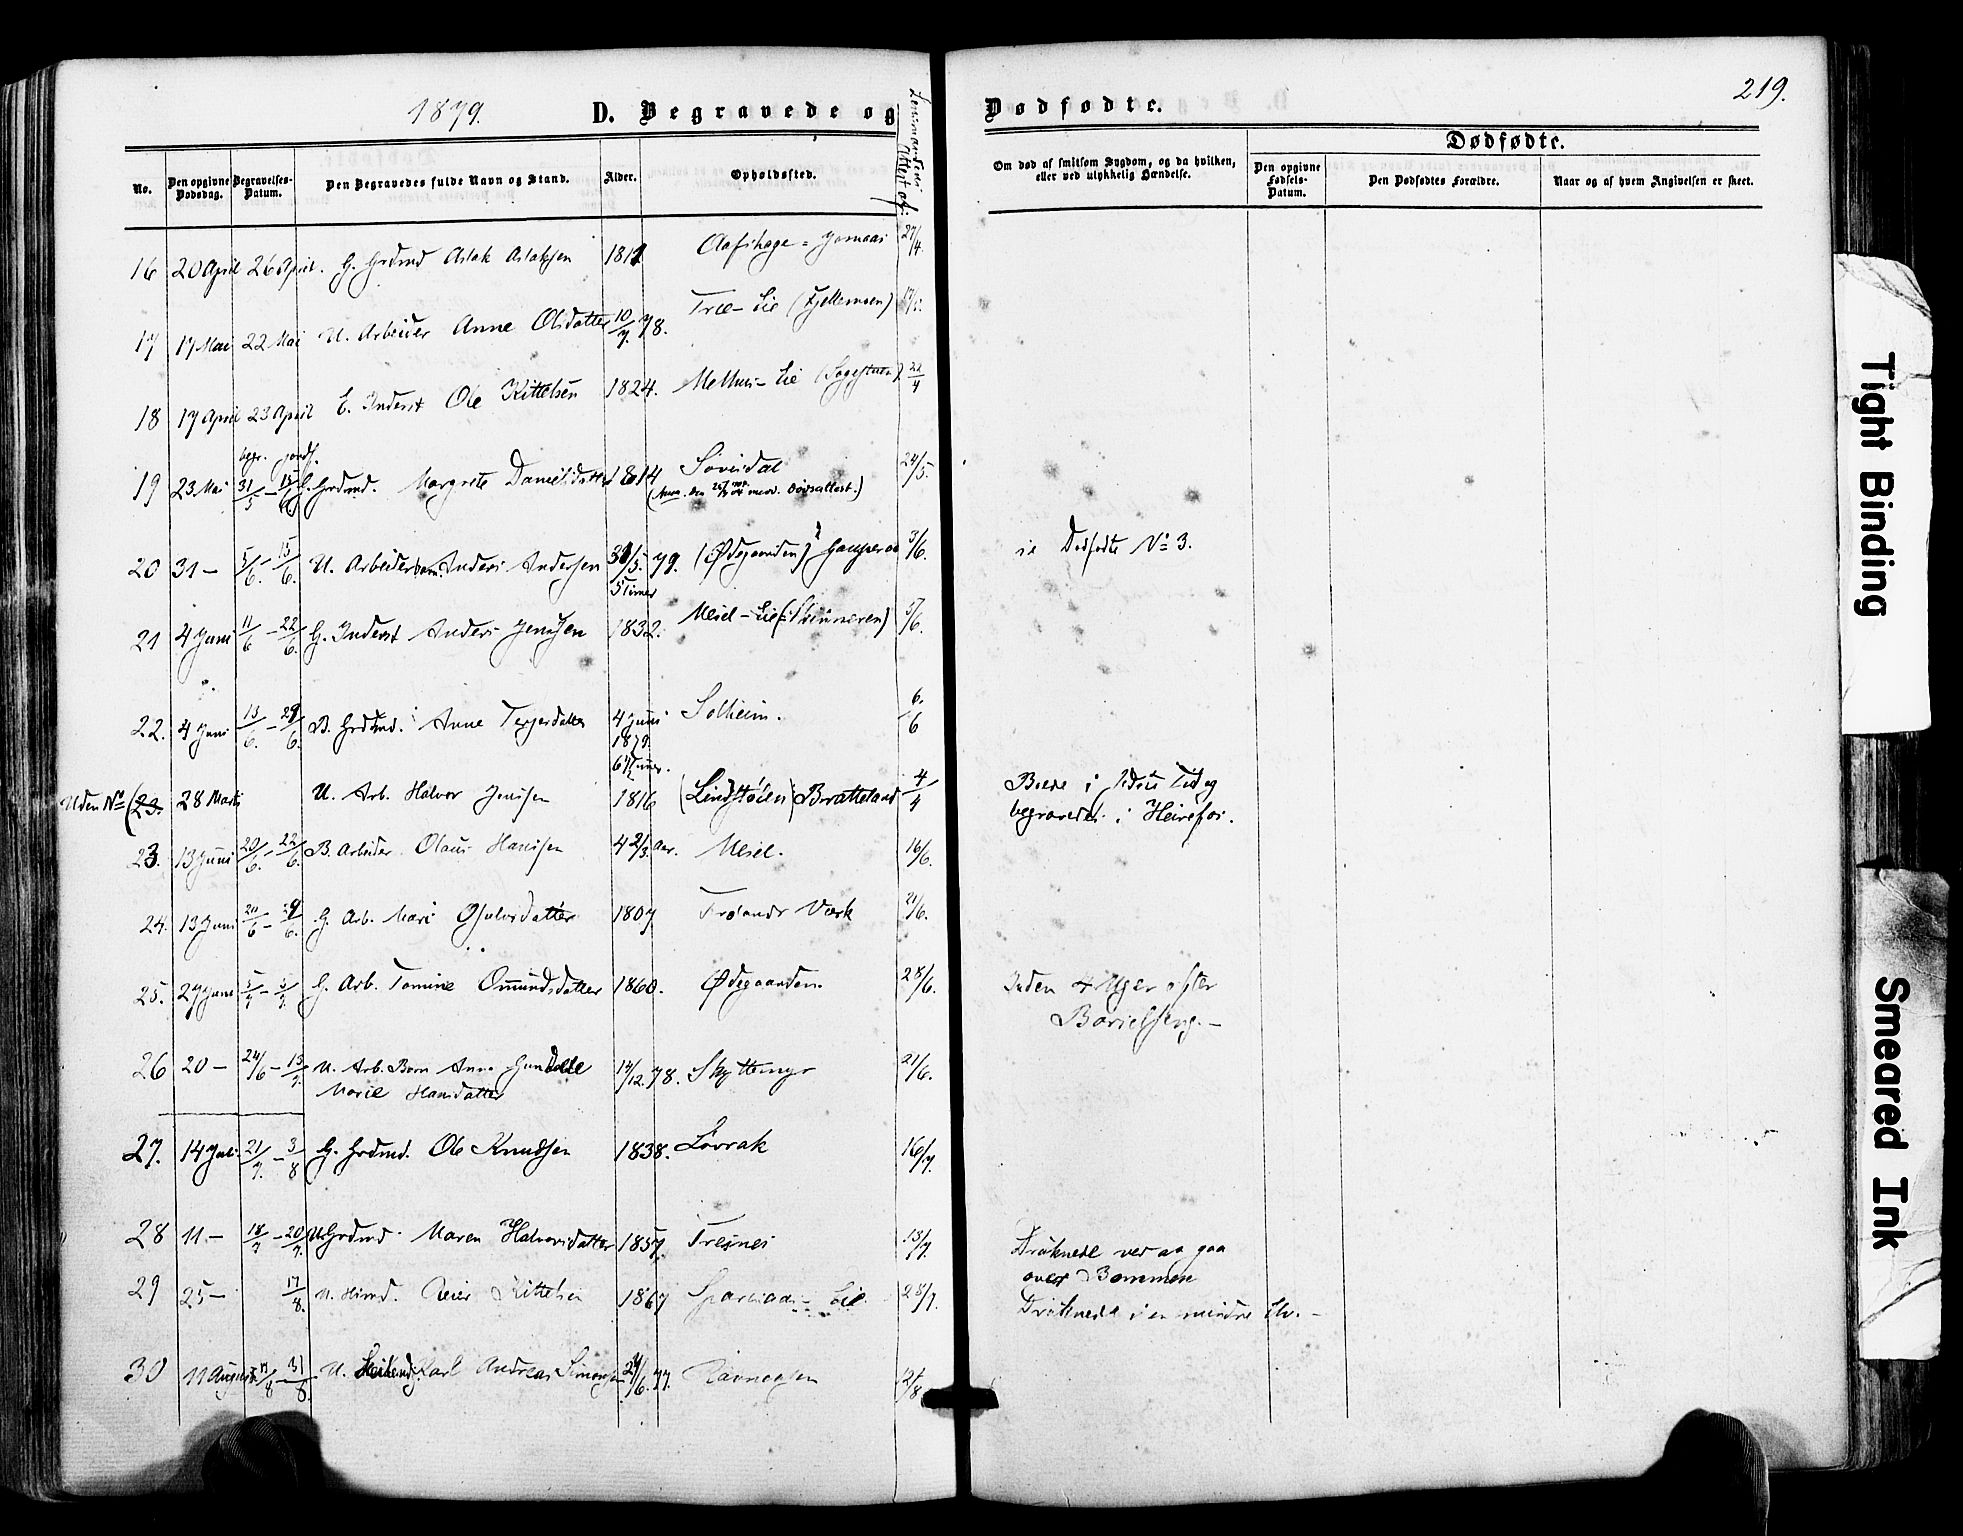 1879.
D. Begravede og
Dødfødte.
219.
Lensmandens
Attest af:
No.
Den opgivne Dødsdag.
Begravelses-Datum.
Den Begravedes fulde Navn og Stand.
Alder.
Opholdssted.
Om død af smitsom Sygdom, og da hvilken,
eller ved ulykkelig Hændelse.
Dødfødte.
Den opgivne Fødsels-Datum.
Den Dødfødtes Forældre.
Naar og af hvem Angivelsen er skeet.
16 20 April 26 April. G. Grdmd Aslak Aslaksen 1811 27/4.
17 17 Mai 22 Mai U. Arbeider Anne Olsdatter 10/7. 78. Træ-Lie (Fjellemoen)
18 17 April 23 April E. Inderst Ole Kittelsen 1824. Melhus-Lie (Sagestuen). 22/4
begr. jordf.
19 23 Mai 31/5 - 15/6 G. Grdmd. Margrete Danielsdatter 1814 24/5.
20 31 - 5/6. - 15/6. U. Arbeiderbarn Anders Andersen 31/5. 79. (Ødegaarden) 3/6. se Dødfødte No 3.
5 Timer
21 4 Juni 11/6 - 22/6. G. Inderst Anders Jensen 1832. 5/6.
22. 4 Juni 13/6. - 29/6. B. Grdmd. Anne Terjesdatter 4 Juni Solheim. 6/6
1879.
Uden No (23. 28 Marts U. Arb. Halvor Jensen 1816 (Lindstøien) Bratteland 4/4
begravedes i Heirefos.
23. 13 Juni 20/6. - 22/6. B. Arbeider Olaus Hansen 4 2/3. Aar. Mesel. 16/6.
24. 13 Juni 20/6 - 29/6. G. Arb. Mari Osulvsdatter 1807 Frolands Værk 21/6.
25. 27 Juni 5/7 - 6/7. G. Arb. Tomine Omundsdatter 1860. Ødegaarden. 28/6. Inden 4 Uger efter
Barselseng. -
26 20 - 24/6 - 13/7. U. Arb. Barn Anne Gunhilde 14/12. 78. Skyttemyr 21/6.
Marie Hansdatter
27. 14 Juli 21/7. - 3/8 G. Grdmd. Ole Knudsen 1838. Løvrak 16/7.
28 11 - 18/7 - 20/7. U. Grdmd. Maren Halvorsdatter 1857. Tresnes 13/7. Druknede ved at gaa
over Bommen
29 25 - 17/8. Reier Kittelsen 1867 28/7. Druknede i en mindre Elv. -
30 11 August 17/8 - 31/8. U. Karl Andreas Simonsen 24/6. 77. Ravnaasen
Tight Binding
Smeared Ink